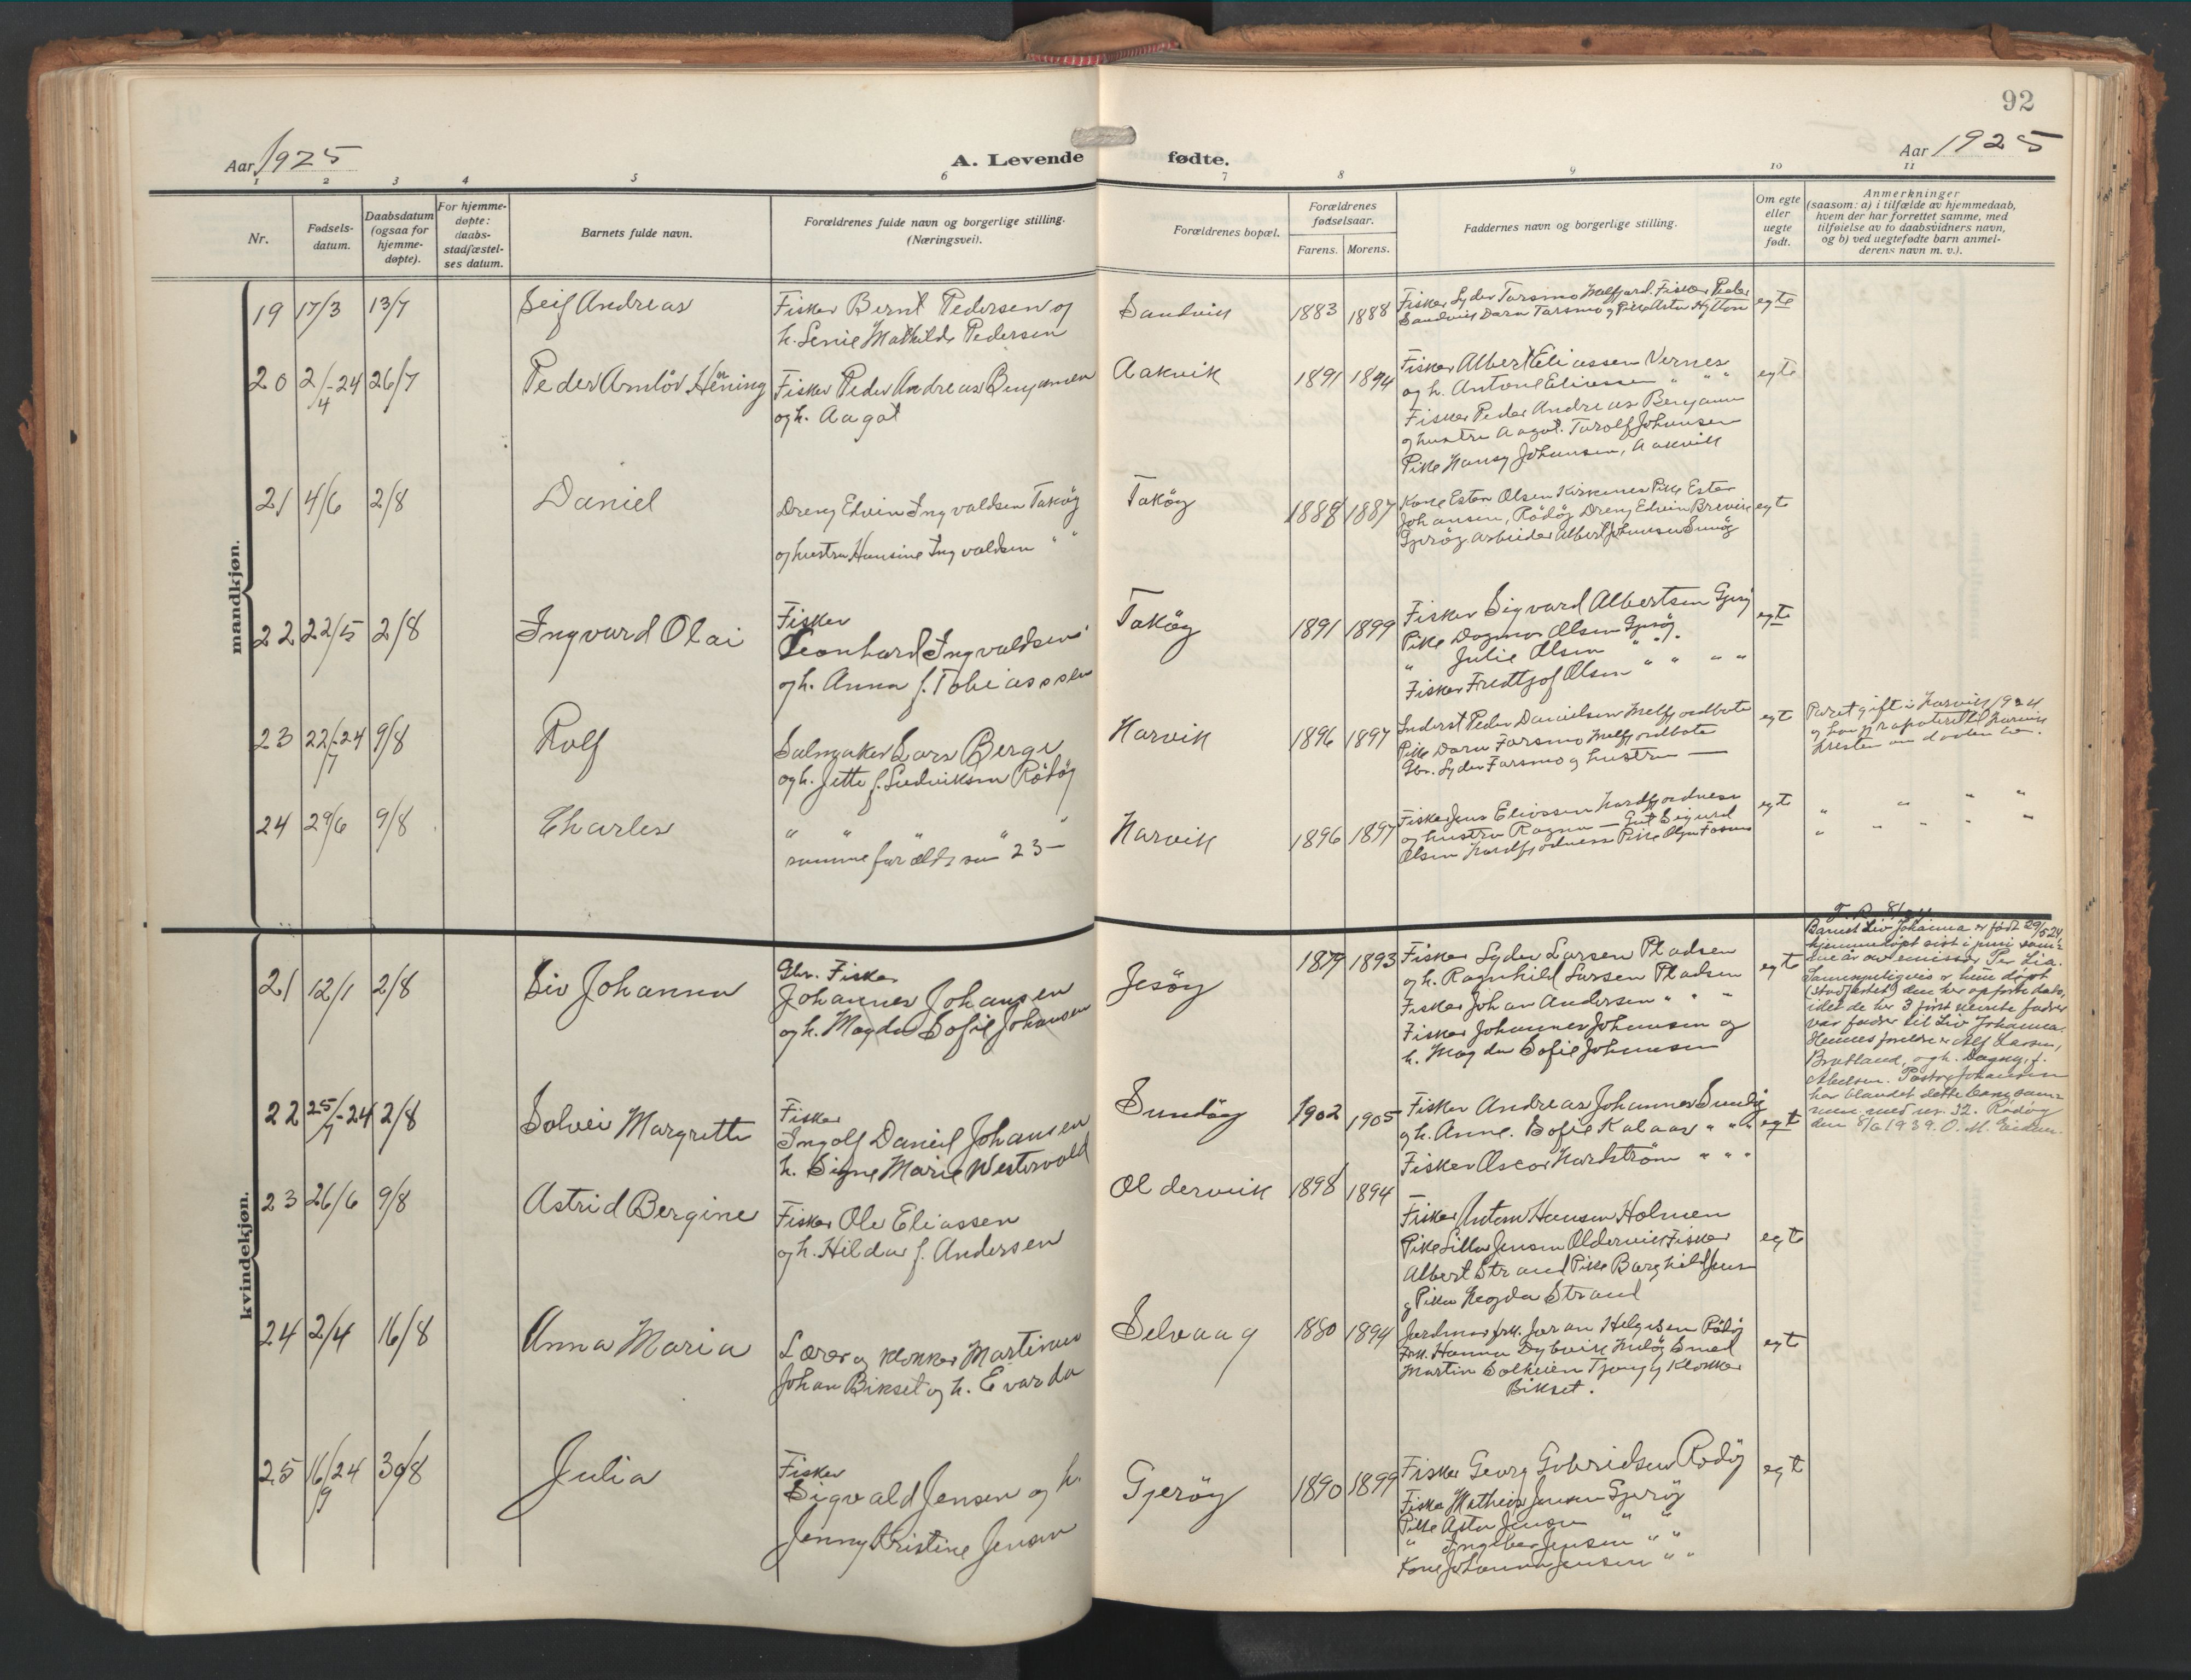 92
Aar 1925
A. Levende fødte.
Aar 1925
1 2 3 4 5 6 7 8 9 10 11
Nr.
Fødsels-
datum.
Daabsdatum
(ogsaa for
hjemme-
døpte).
For hjemme-
døpte:
daabs-
stadfæstel-
ses datum.
Barnets fulde navn.
Forældrenes fulde navn og borgerlige stilling.
(Næringsvei).
Forældrenes bopæl.
Forældrenes
fødselsaar.
Farens. Morens.
Faddernes navn og borgerlige stilling.
Om egte
eller
uegte
født.
Anmerkninger
(saasom: a) i tilfælde av hjemmedaab,
hvem der har forrettet samme, med
tilføielse av to daabsvidners navn,
og b) ved uegtefødte barn anmel-
derens navn m. v.).
mandkjøn.
19 17/3 13/7 Leif Andreas
Fisker Bernt Pedersen og
h. Lenie Mathilde Pedersen
Sandvik 1883 1888
Fisker Lyder Farsmo Melfjord. Fisker Peder
Sandvik Dara Farsmo og Pike Asta Hytten
egte
20 2/4-24 26/7 Peder Arnløv Hening
Fisker Peder Andreas Benjamen
og h. Aagot
Aakvik 1891 1894
Fisker Albert Eliassen Vernes
og h. Antone Eliassen " " "
Fisker Peder Andreas Benjamin
og hustru Aagot. Torolf Johansen
Pike Hansy Johansen, Aakvik
egte
21 4/6 2/8 Daniel
Dreng Edvin Ingvaldsen Takøy
og hustru Hansine Ingvaldsen " "
Takøy 1888 1887
Kone Ester Olsen Kirkenes Pike Ester
Johansen, Rødøy Dreng Edvin Brevik
Gjerøy Arbeider Albert Johansen Sunøy
egte
22 22/5 2/8 Ingvard Olai
Fisker
Leonhard Ingvaldsen
og h. Anna f. Tobiassen
Takøy 1891 1899
Fisker Sigvard Albertsen Gjerøy
Pike Dagmar Olsen Gjerøy
" Julie Olsen " "
Fisker Fredtjof Olsen " " " "
egte
23 22/7-24 9/8 Rolf
Salmaker Lars Berge
og h. Jette f. Ludviksen Rødøy
Narvik 1896 1897
Inderst Peder Danielsen Melfjordbotn
Pike Dara Farsmo Melfjordbotn
Gbr. Lyder Farsmo og hustru —
egte
Paret gift i Narvik 1924
og har jeg rapoterett til Narvik
Presten om daaben her.
24 29/6 9/8 Charles
" " " " "
samme forældre som 23 —
Narvik 1896 1897
Fisker Jens Eliassen Nordfjordnes
og hustru Ragna — Gut Sigurd
Olsen Nordfjordnes Pike Olga
egte
" " " "
" " " " "
kvindekjøn.
21 12/1 2/8 Liv Johanna
Gbr. Fisker
Johannes Johansen
og h. Magda Sofie Johansen
Jesøy 1879 1893
Fisker Lyder Larsen Pladsen
og h. Ragnhild Larsen Pladsen
Fisker Johan Andersen " " "
Fisker Johannes Johansen og
h. Magda Sofie Johansen
egte
Barnet Liv Johanna er født 29/5 24
hjemmedøpt sist i juni sam-
me år av emissær Per Lia.
Sannsynligvis er hun døpt
(stadfestet) den her opførte dato,
idet de her 3 først nevnte faddere
var faddere til Liv Johanna.
Hennes foreldre er Alf Larsen,
Bratland, og h. Dagny, f.
Abelsen. Pastor Johansen
har blandet dette barn sam-
men med nr. 32. Rødøy
den 8/6 1939. O. M. Eidem.
22 25/7-24 2/8 Solvei Margrethe
Fisker
Ingolf Daniel Johansen
h. Signe Marie Westervold
Sundøy 1902 1905
Fisker Andreas Johannes Sundøy
og h. Anne. Sofie Kalaas " " "
Fisker Oscar Nordstrøm " " "
egte
23 26/6 9/8 Astrid Bergine
Fisker Ole Eliassen
og h. Hilda f. Andersen
Oldervik 1898 1894
Fisker Anton Hansen Holmen
Pike Lilla Jensen Oldervik Fisker
Albert Strand Pike Borghild Jensen
og Pike Magda Strand
egte
24 2/4 16/8 Anna Maria
Lærer og klokker Martinus
Johan Bikset og h. Evarda
Selvaag 1880 1894
Jordmor frk. Joran Helgesen Rødøy
Frk. Hanna Dybvik Meløy Smed
Martin Solheien Tjong og Klokker
Bikset.
egte
25 16/9 24 30/8 Julia
Fisker
Sigvald Jensen og h.
Jenny Kristine Jensen
Gjerøy 1890 1899
Fisker Georg Gabrielsen Rødøy
Fisker Matheis Jensen Gjerøy
Pike Asta Jensen " "
" Ingeber Jensen " "
Kone Johanna Jensen " "
egte